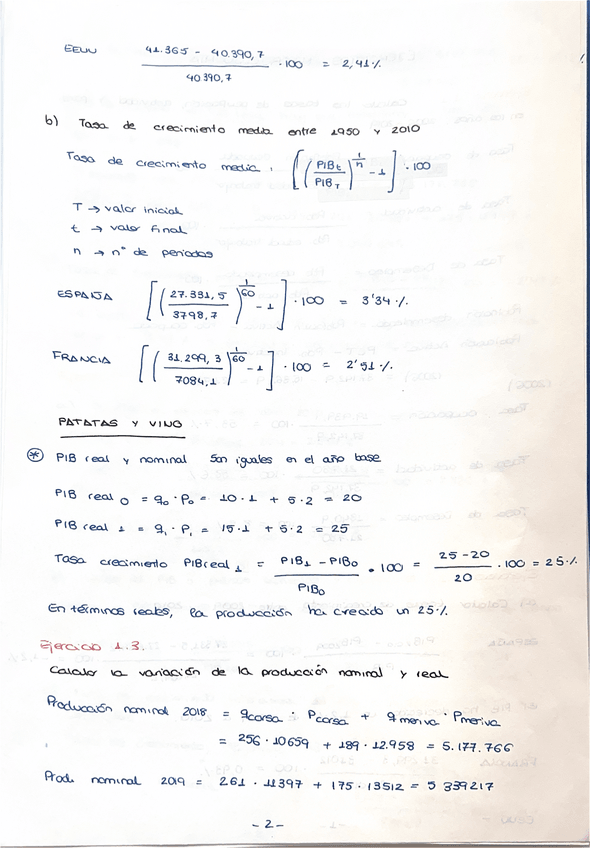 EEUU 41.365 - 40.390,7 / 40390,7 · 100 = 2,41 %
b) Tasa de crecimiento media entre 1950 y 2010
Tasa de crecimiento media: [(PIBt / PIBT)^(1/n) - 1] · 100
T → valor inicial
t → valor final
n → nº de periodos
ESPAÑA [(27.331,5 / 3798,7)^(1/60) - 1] · 100 = 3'34 %
FRANCIA [(31.299,3 / 7084,1)^(1/60) - 1] · 100 = 2'51 %
PATATAS Y VINO
* PIB real y nominal son iguales en el año base
PIB real 0 = q0 · P0 = 10·1 + 5·2 = 20
PIB real 1 = q1 · P1 = 15·1 + 5·2 = 25
Tasa crecimiento PIBreal1 = PIB1 - PIB0 / PIB0 · 100 = 25-20 / 20 · 100 = 25 %
En términos reales, la producción ha crecido un 25 %
Ejercicio 1.3.
Calcular la variación de la producción nominal y real
Producción nominal 2018 = qcorsa · Pcorsa + qmeriva · Pmeriva
= 256 · 10659 + 189 · 12.958 = 5.177.766
Prod. nominal 2019 = 261 · 11397 + 175 · 13512 = 5 339217
- 2 -